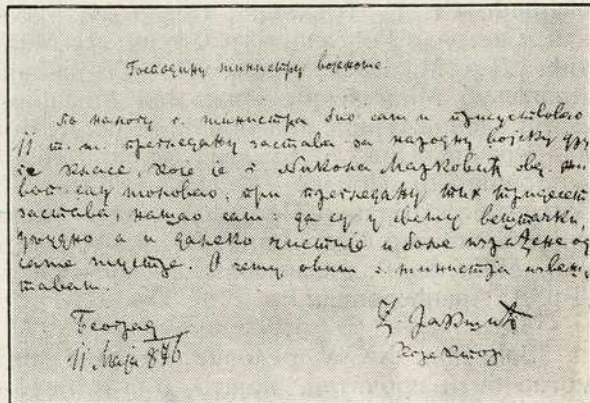 Господину министру војноме.
По налогу г. министра био сам и присуствовао
11 т. м. прегледању застава за народну војску дру
ге класе, које је г Никола Марковић овд. жи
вописац моловао; при прегледању тих тридесет
застава, нашао сам: да су у свему вештачки,
угодно а и далеко чистије и боље израђене од
саме мустре. О чему овим г. министра извеш,
тавам.
Београд
11 Маја 876